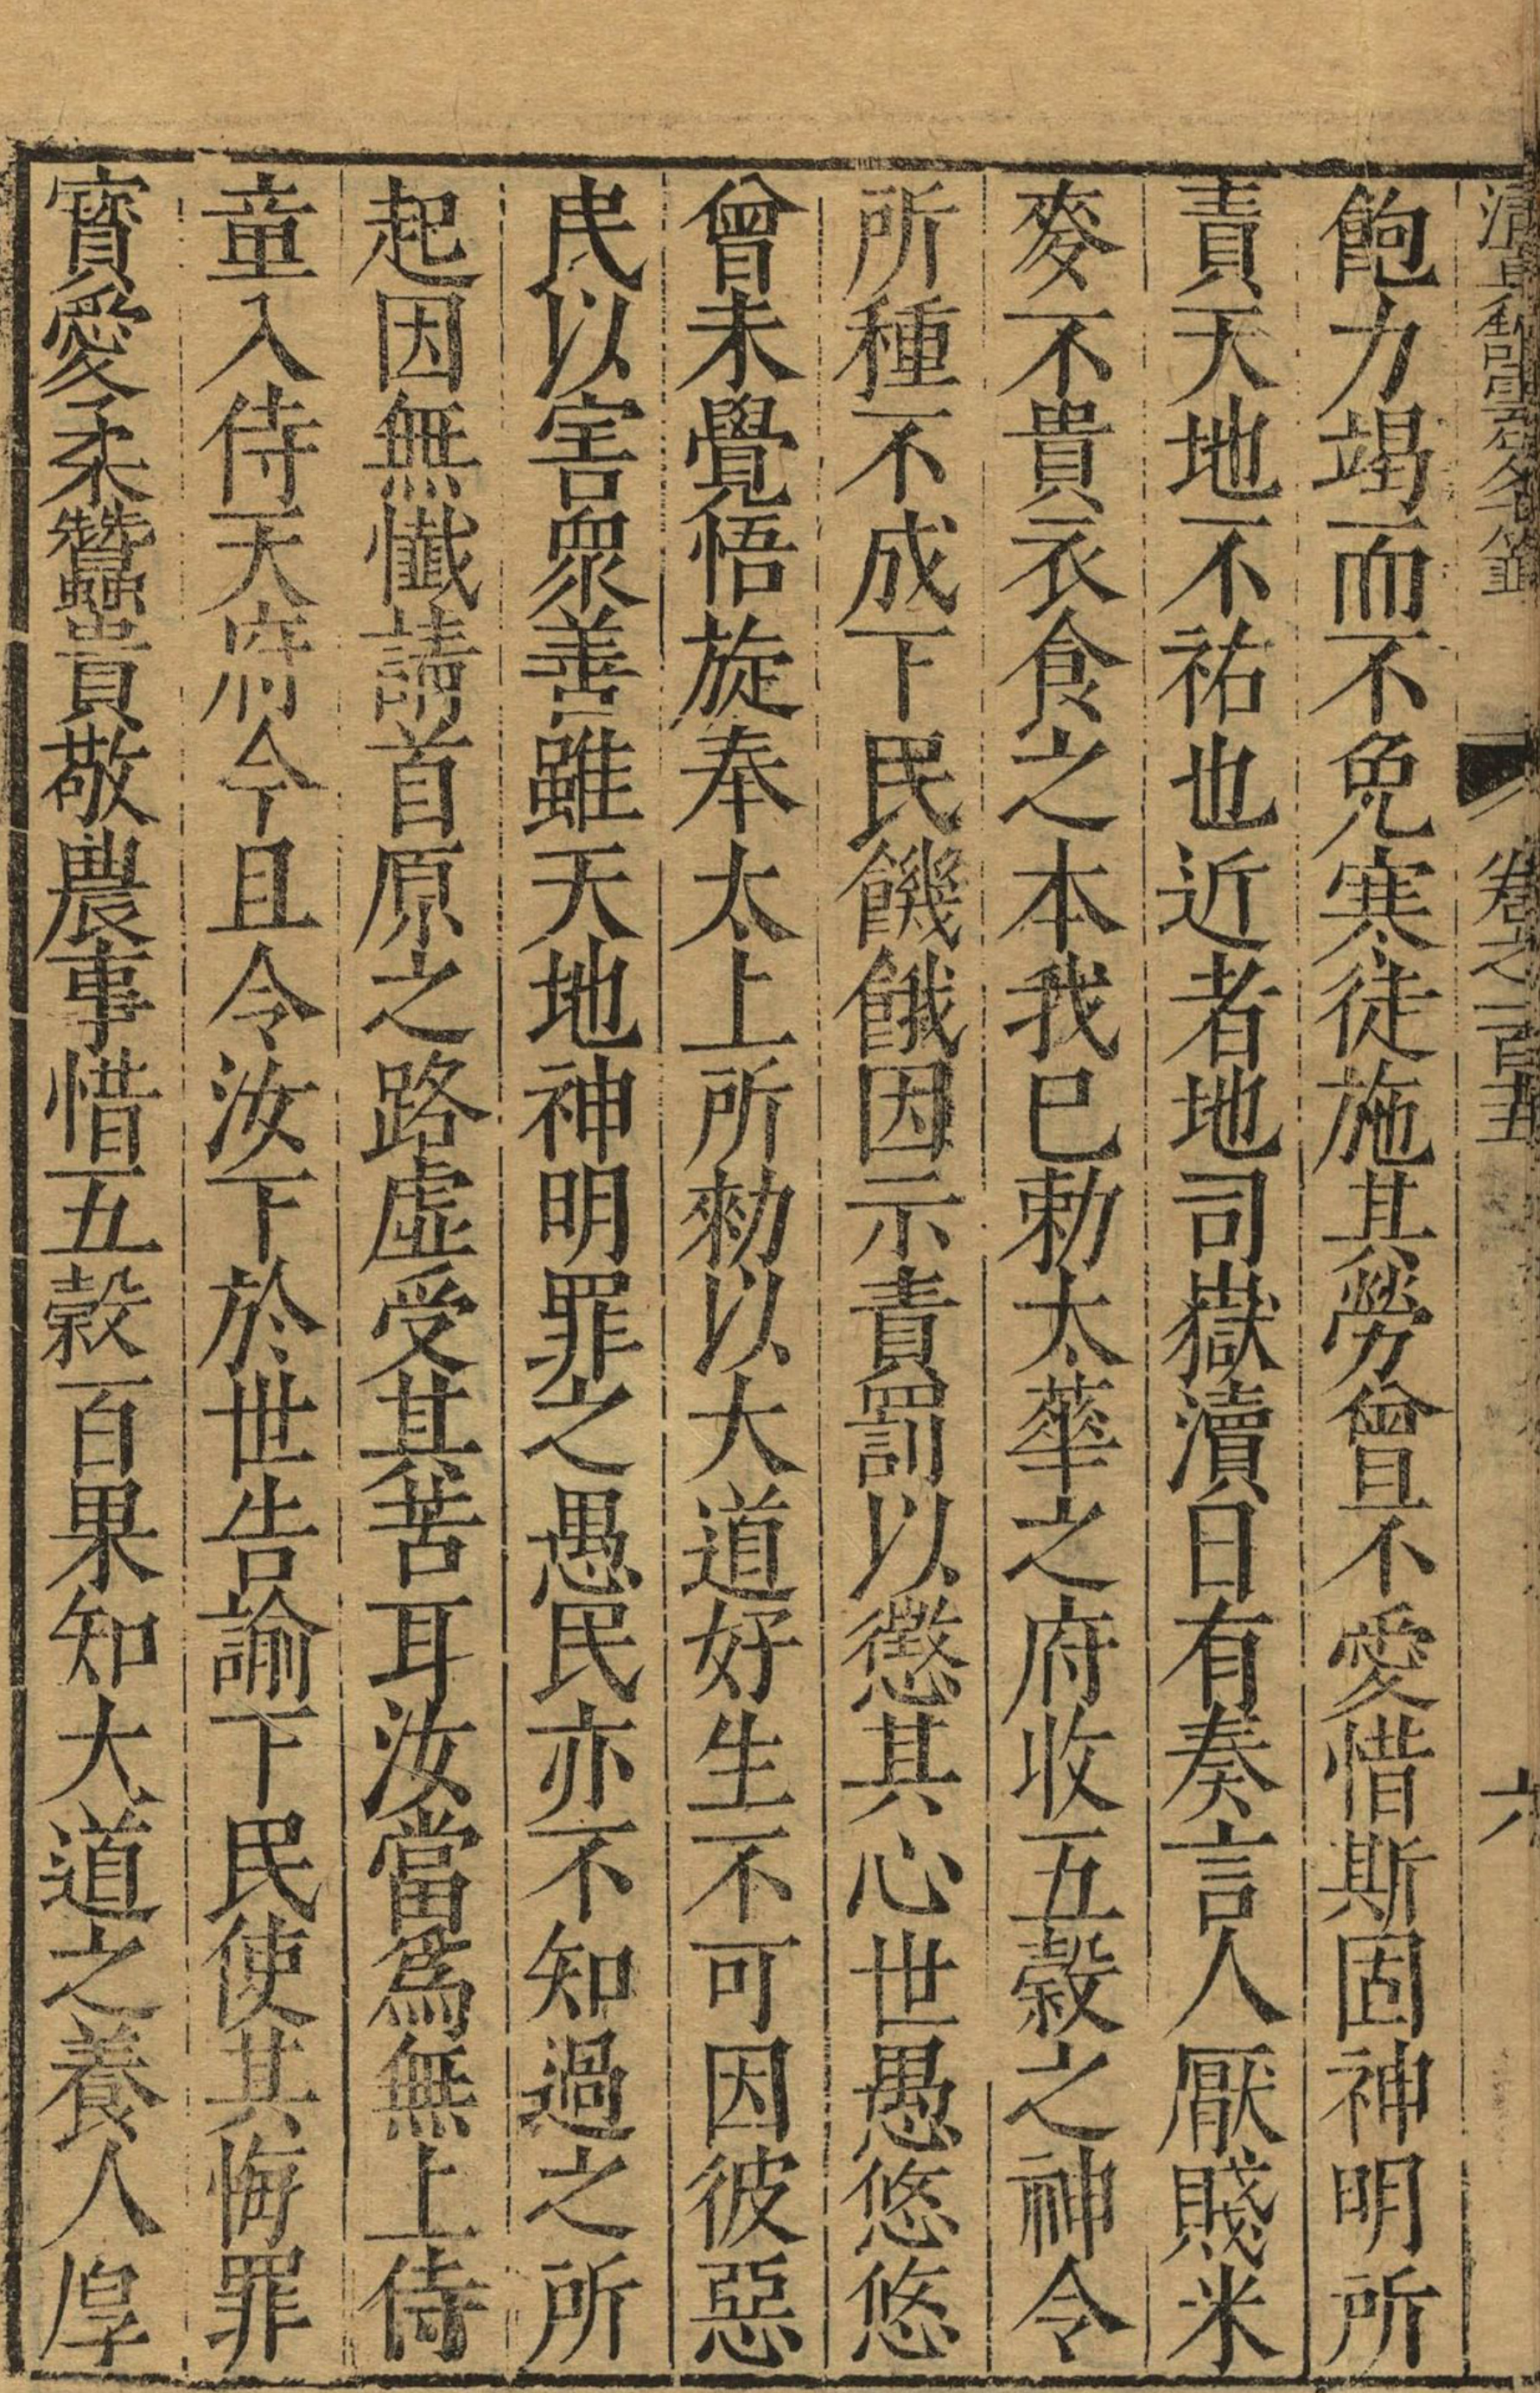 卷之一百五　六
飽力竭而不免寒徒施其勞曾不愛惜斯固神明所
責天地不祐也近者地司嶽瀆日有奏言人厭賤米
麥不貴衣食之本我已勅太華之府收五糓之神令
所種不成下民饑餓因示責罰以懲其心世愚悠悠
曾未覺悟旋奉太上所勑以大道好生不可因彼惡
民以害衆善雖天地神明罪之愚民亦不知過之所
起因無懺請首原之路虛受其苦耳汝當爲無上侍
童入侍天府今且令汝下於世告諭下民使其悔罪
寳愛柔蠶貴敬農事惜五糓百果知大道之養人厚